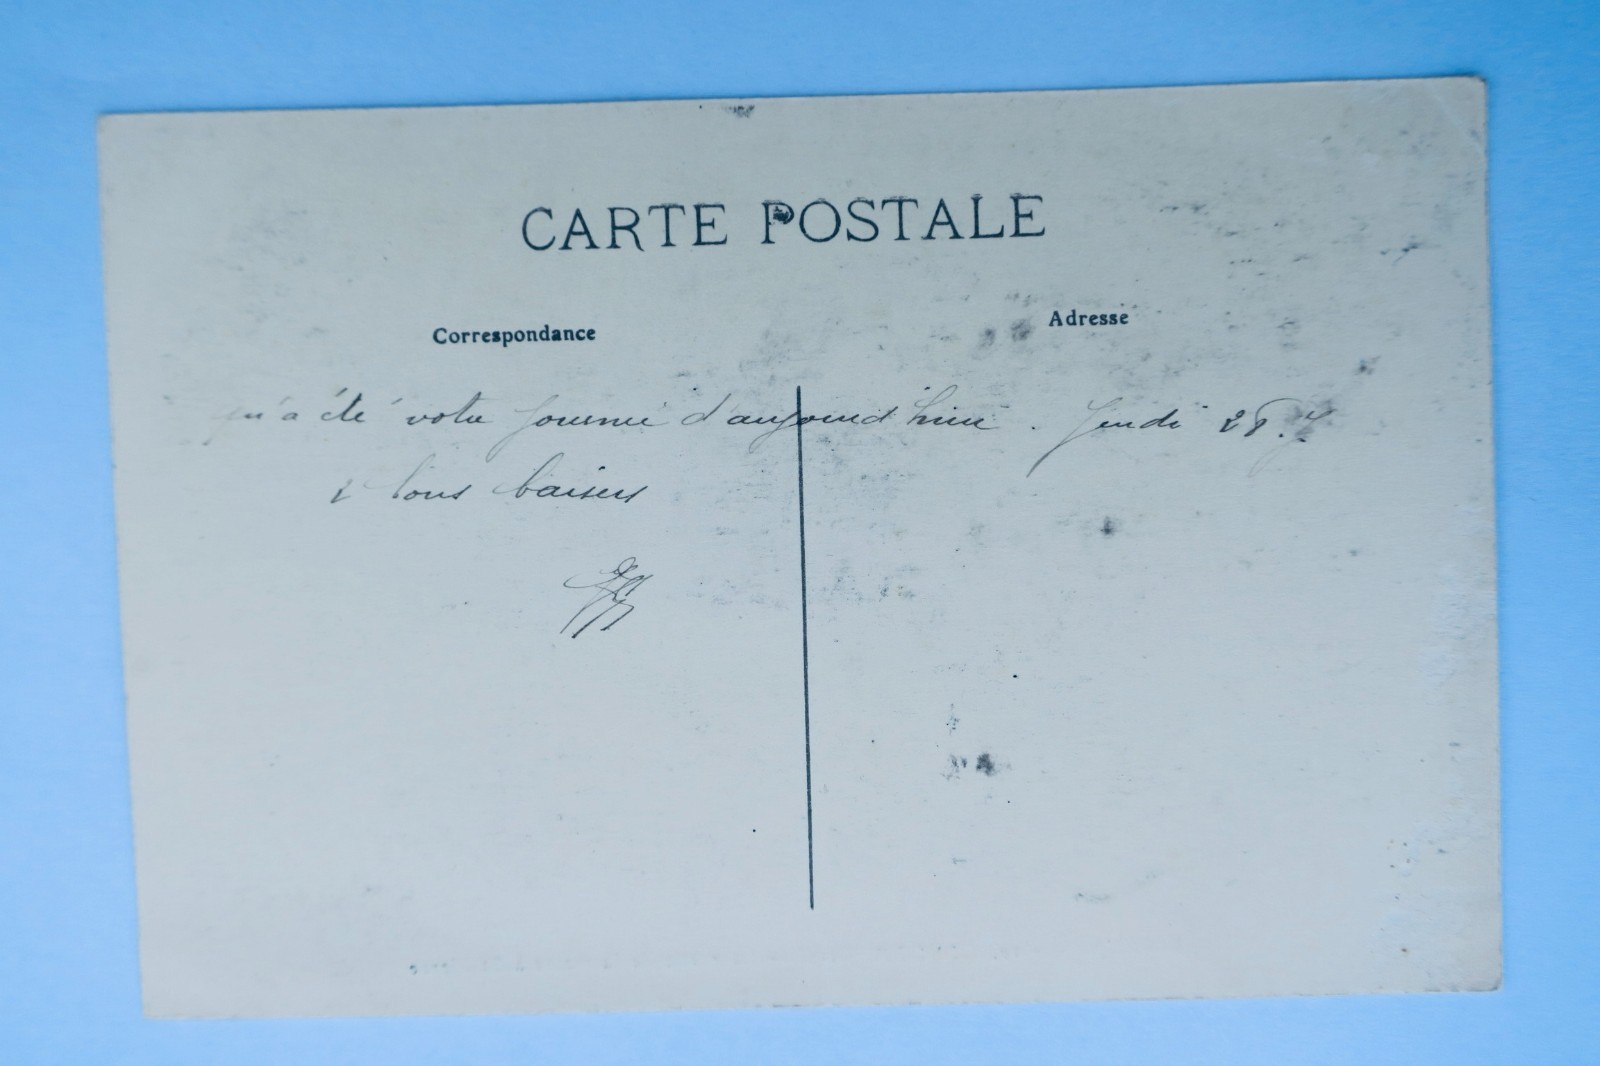 CARTE POSTALE
Correspondance
Adresse
qu'a été votre journée d'aujourd'hui. Jeudi
Bons baisers